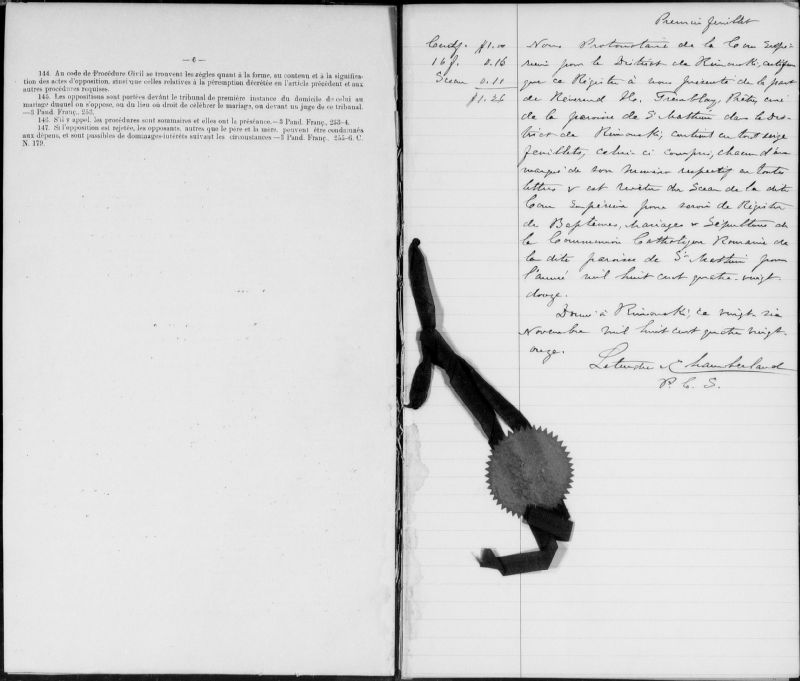 — 6 —
144. Au code de Procédure Civil se trouvent les règles quant à la forme, au contenu et à la significa-
tion des actes d'opposition, ainsi que celles relatives à la péremption décrétée en l'article précédent et aux
autres procédures requises.
145. Les oppositions sont portées devant le tribunal de première instance du domicile de celui au
mariage duquel on s'oppose, ou du lieu où droit de célébrer le mariage, ou devant un juge de ce tribunal.
—3 Pand. Franç. 253.
146. S'il y appel, les procédures sont sommaires et elles ont la préséance.—3 Pand. Franç., 253-4.
147. Si l'opposition est rejetée, les opposants, autres que le père et la mère, peuvent être condamnés
aux dépens, et sont passibles de dommages-intérêts suivant les circonstances —3 Pand. Franç. 255-6. C.
N. 179.
Premier feuillet
$1.00
16 f. 0.16
Sceau 0.11
Nous Protonotaire de la Cour Supé-
rieure pour le District de Rimouski, certifions
que ce Régistre à nous présenté de la part
de Révérend Tremblay, Prêtre, curé
de la paroisse de St Mathieu dans le Dis-
trict de Rimouski, contient en tout seize
feuillets, celui-ci compris, chacun d'eux
marqué de son numéro respectif en toutes
lettres & est revêtu du Sceau de la dite
Cour Supérieure pour servir de Régistre
de Baptêmes, Mariages & Sépultures de
la Communion Catholique Romaine de
la dite paroisse de St Mathieu pour
l'année mil huit cent quatre-vingt-
douze.
Donné à Rimouski, ce vingt six
Novembre mil huit cent quatre vingt
onze.
Letendre & Chamberland
P. C. S.